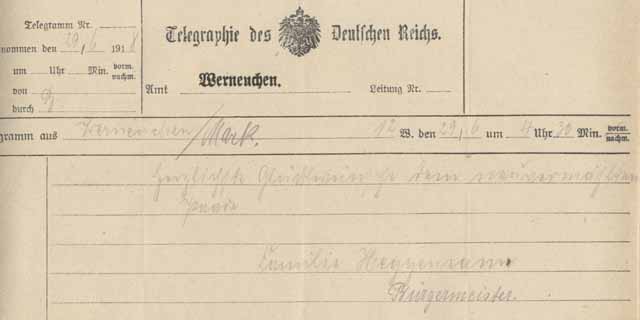 Telegramm Nr.
Telegraphie des Deutschen Reichs.
nommen den 29/6 1918
um Uhr Min. vorm. nachm.
von
durch
Amt Werneuchen. Leitung Nr.
gramm aus Werneuchen/Mark. 12 W. den 29/6 um 4 Uhr 30 Min. vorm. nachm.
Herzlichste Glückwünsche dem neuvermählten
Paare
Familie
Bürgermeister.